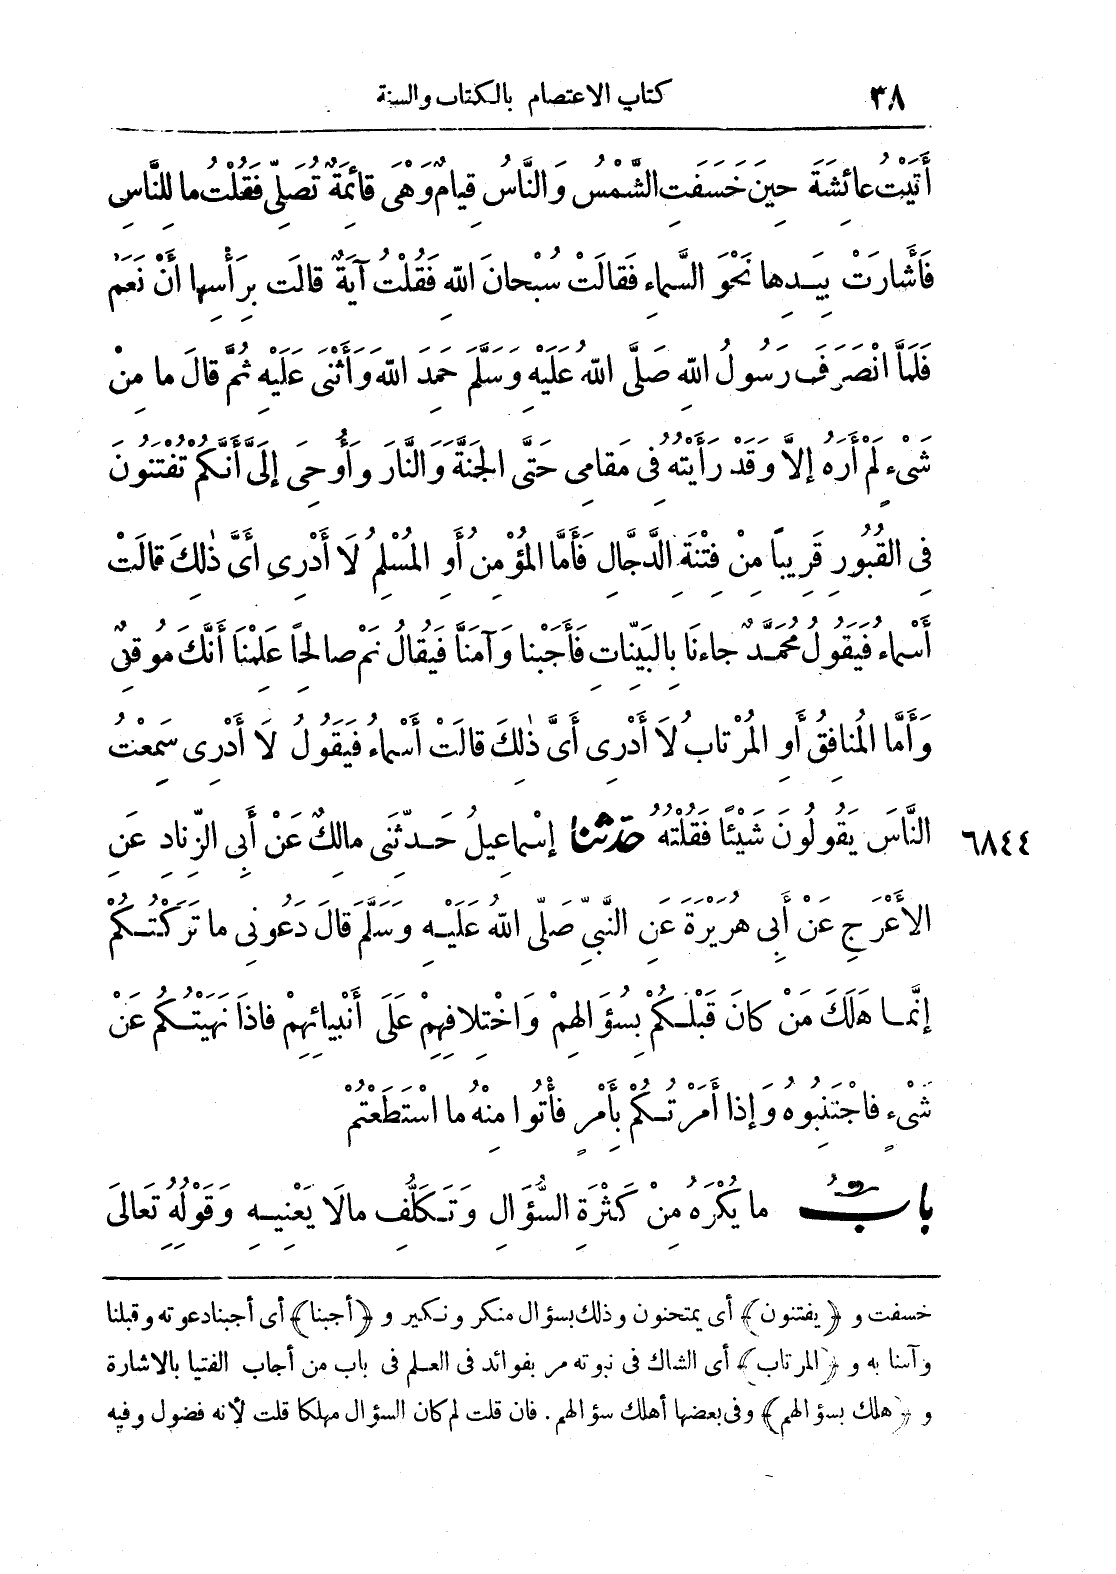 ٣٨ كتاب الاعتصام بالكتاب والسنة
أَتَيْتُ عائِشَةَ حِينَ خَسَفَتِ الشَّمْسُ وَالنَّاسُ قِيامٌ وَهْىَ قائِمَةٌ تُصَلِّى فَقُلْتُ ما لِلنَّاسِ
فَأَشارَتْ بِيَدِها نَحْوَ السَّماءِ فَقالَتْ سُبْحانَ اللهِ فَقُلْتُ آيَةٌ قالَت بِرَأْسِها أَنْ نَعَمْ
فَلَمَّا انْصَرَفَ رَسُولُ اللهِ صَلَّى اللهُ عَلَيْهِ وَسَلَّمَ حَمِدَ اللهَ وَأَثْنَى عَلَيْهِ ثُمَّ قالَ ما مِنْ
شَىْءٍ لَمْ أَرَهُ إلاَّ وَقَدْ رَأَيْتُهُ فِى مَقامِى حَتَّى الجَنَّةَ وَالنَّارَ وَأُوحِىَ إلَىَّ أَنَّكُمْ تُفْتَنُونَ
فِى القُبُورِ قَرِيباً مِنْ فِتْنَةِ الدَّجَّالِ فَأَمَّا المُؤْمِنُ أَوِ المُسْلِمُ لَا أَدْرِى أَىَّ ذٰلِكَ قالَتْ
أَسْماءُ فَيَقُولُ مُحَمَّدٌ جاءَنَا بِالبَيِّناتِ فَأَجَبْنا وَآمَنَّا فَيُقالُ نَمْ صالِحاً عَلِمْنَا أَنَّكَ مُوقِنٌ
وَأَمَّا المُنافِقُ أَوِ المُرْتابُ لَا أَدْرِى أَىَّ ذٰلِكَ قالَتْ أَسْماءُ فَيَقُولُ لَا أَدْرِى سَمِعْتُ
النَّاسَ يَقُولُونَ شَيْئًا فَقُلْتُهُ حَدّثنا إسْماعِيلُ حَدّثَنِى مالِكٌ عَنْ أَبِى الزِّنادِ عَنِ ٦٨٤٤
الأَعْرَجِ عَنْ أَبِى هُرَيْرَةَ عَنِ النَّبِيِّ صَلَّى اللهُ عَلَيْهِ وَسَلَّمَ قالَ دَعُونِى ما تَرَكْتُكُمْ
إنَّما هَلَكَ مَنْ كانَ قَبْلَكُمْ بِسُؤَالِهِمْ وَاخْتِلافِهِمْ عَلَى أَنْبِيائِهِمْ فاذَا نَهَيْتُكُمْ عَنْ
شَىْءٍ فاجْتَنِبُوهُ وَإذا أَمَرْتُكُمْ بِأَمْرٍ فأْتُوا مِنْهُ ما اسْتَطَعْتُمْ
بابُ ما يُكْرَهُ مِنْ كَثْرَةِ السُّؤَالِ وَتَكَلُّفِ مالَا يَعْنِيهِ وَقَوْلُهُ تَعالَى
خسفت و ﴿يفتنون﴾ أى يمتحنون وذلك بسؤال منكر ونكير و ﴿أجبنا﴾ أى أجبنا دعوته وقبلنا
وآمنا به و ﴿المرتاب﴾ أى الشاك فى نبوته مر بفوائد فى العلم فى باب من أجاب الفتيا بالاشارة
و ﴿هلك بسؤالهم﴾ وفى بعضها أهلك سؤالهم. فان قلت لم كان السؤال مهلكا قلت لأنه فضول وفيه